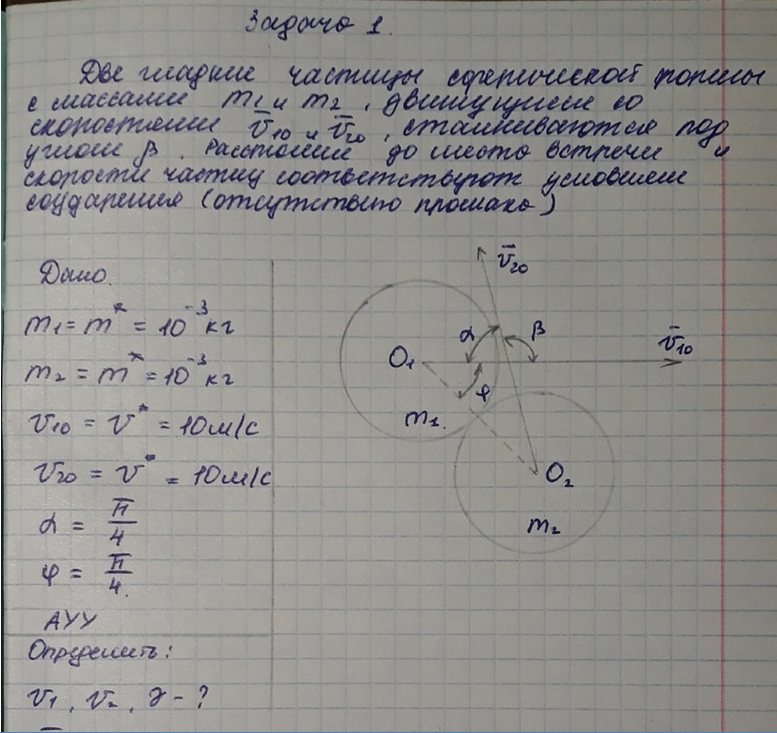 Задача 1.
Две гладкие частицы сферической формы
с массами m₁ и m₂, движущиеся со
скоростями v̅₁₀ и v̅₂₀, сталкиваются под
углом β. Расстояния до места встречи и
скорости частиц соответствуют условиям
соударения (отсутствию промаха)
Дано
m₁ = m* = 10⁻³ кг
m₂ = m* = 10⁻³ кг
v₁₀ = v* = 10 м/с
v₂₀ = v* = 10 м/с
α = π/4
φ = π/4.
АУУ
Определить:
v₁, v₂, γ - ?
v̅₂₀
α
β
v̅₁₀
O₁
φ
m₁.
O₂
m₂